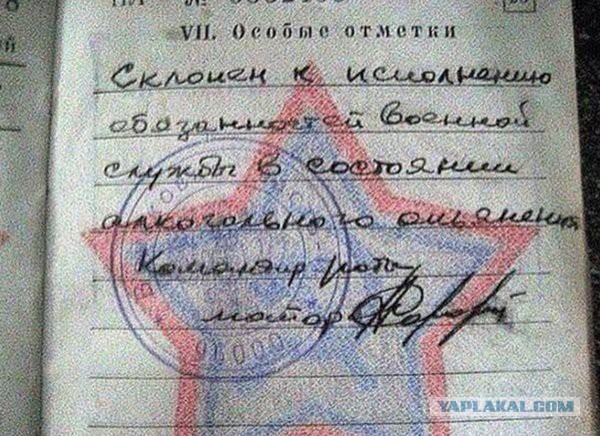 №
VII. Особые отметки
Склонен к исполнению
обязанностей военной
службы в состоянии
алкогольного опьянения
Командир роты
майор
YAPLAKAL.COM